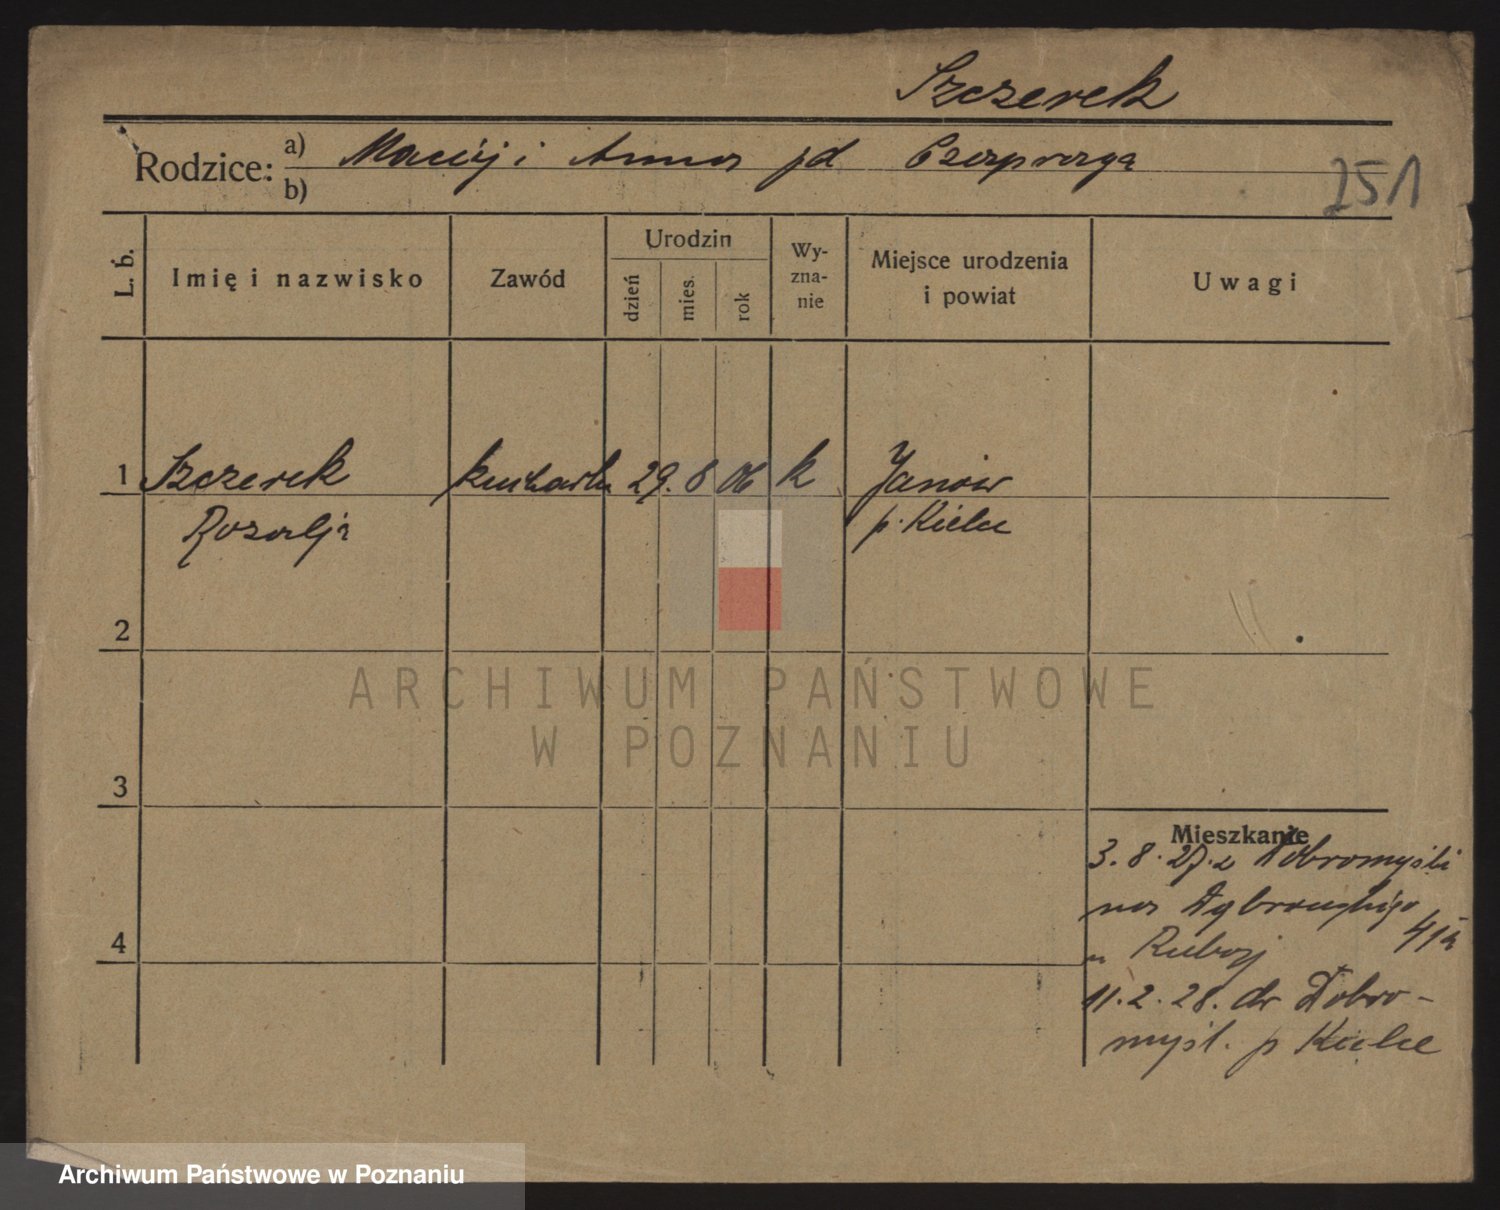 Szczerek
Rodzice: a) Maciej i Anna pd
b)
251
L. b. Imię i nazwisko Zawód Urodzin dzień mies. rok Wyznanie Miejsce urodzenia i powiat Uwagi
1 Szczerek kucharka 29. 8 06 k Janów
Rozalja p. Kielce
2
ARCHIWUM PAŃSTWOWE
W POZNANIU
3
Mieszkanie
3. 8. 27. z Dobromyśli
na Dąbrowskiego
u 41a
11. 2. 28. do Dobro-
myśl. p Kielce
4
Archiwum Państwowe w Poznaniu